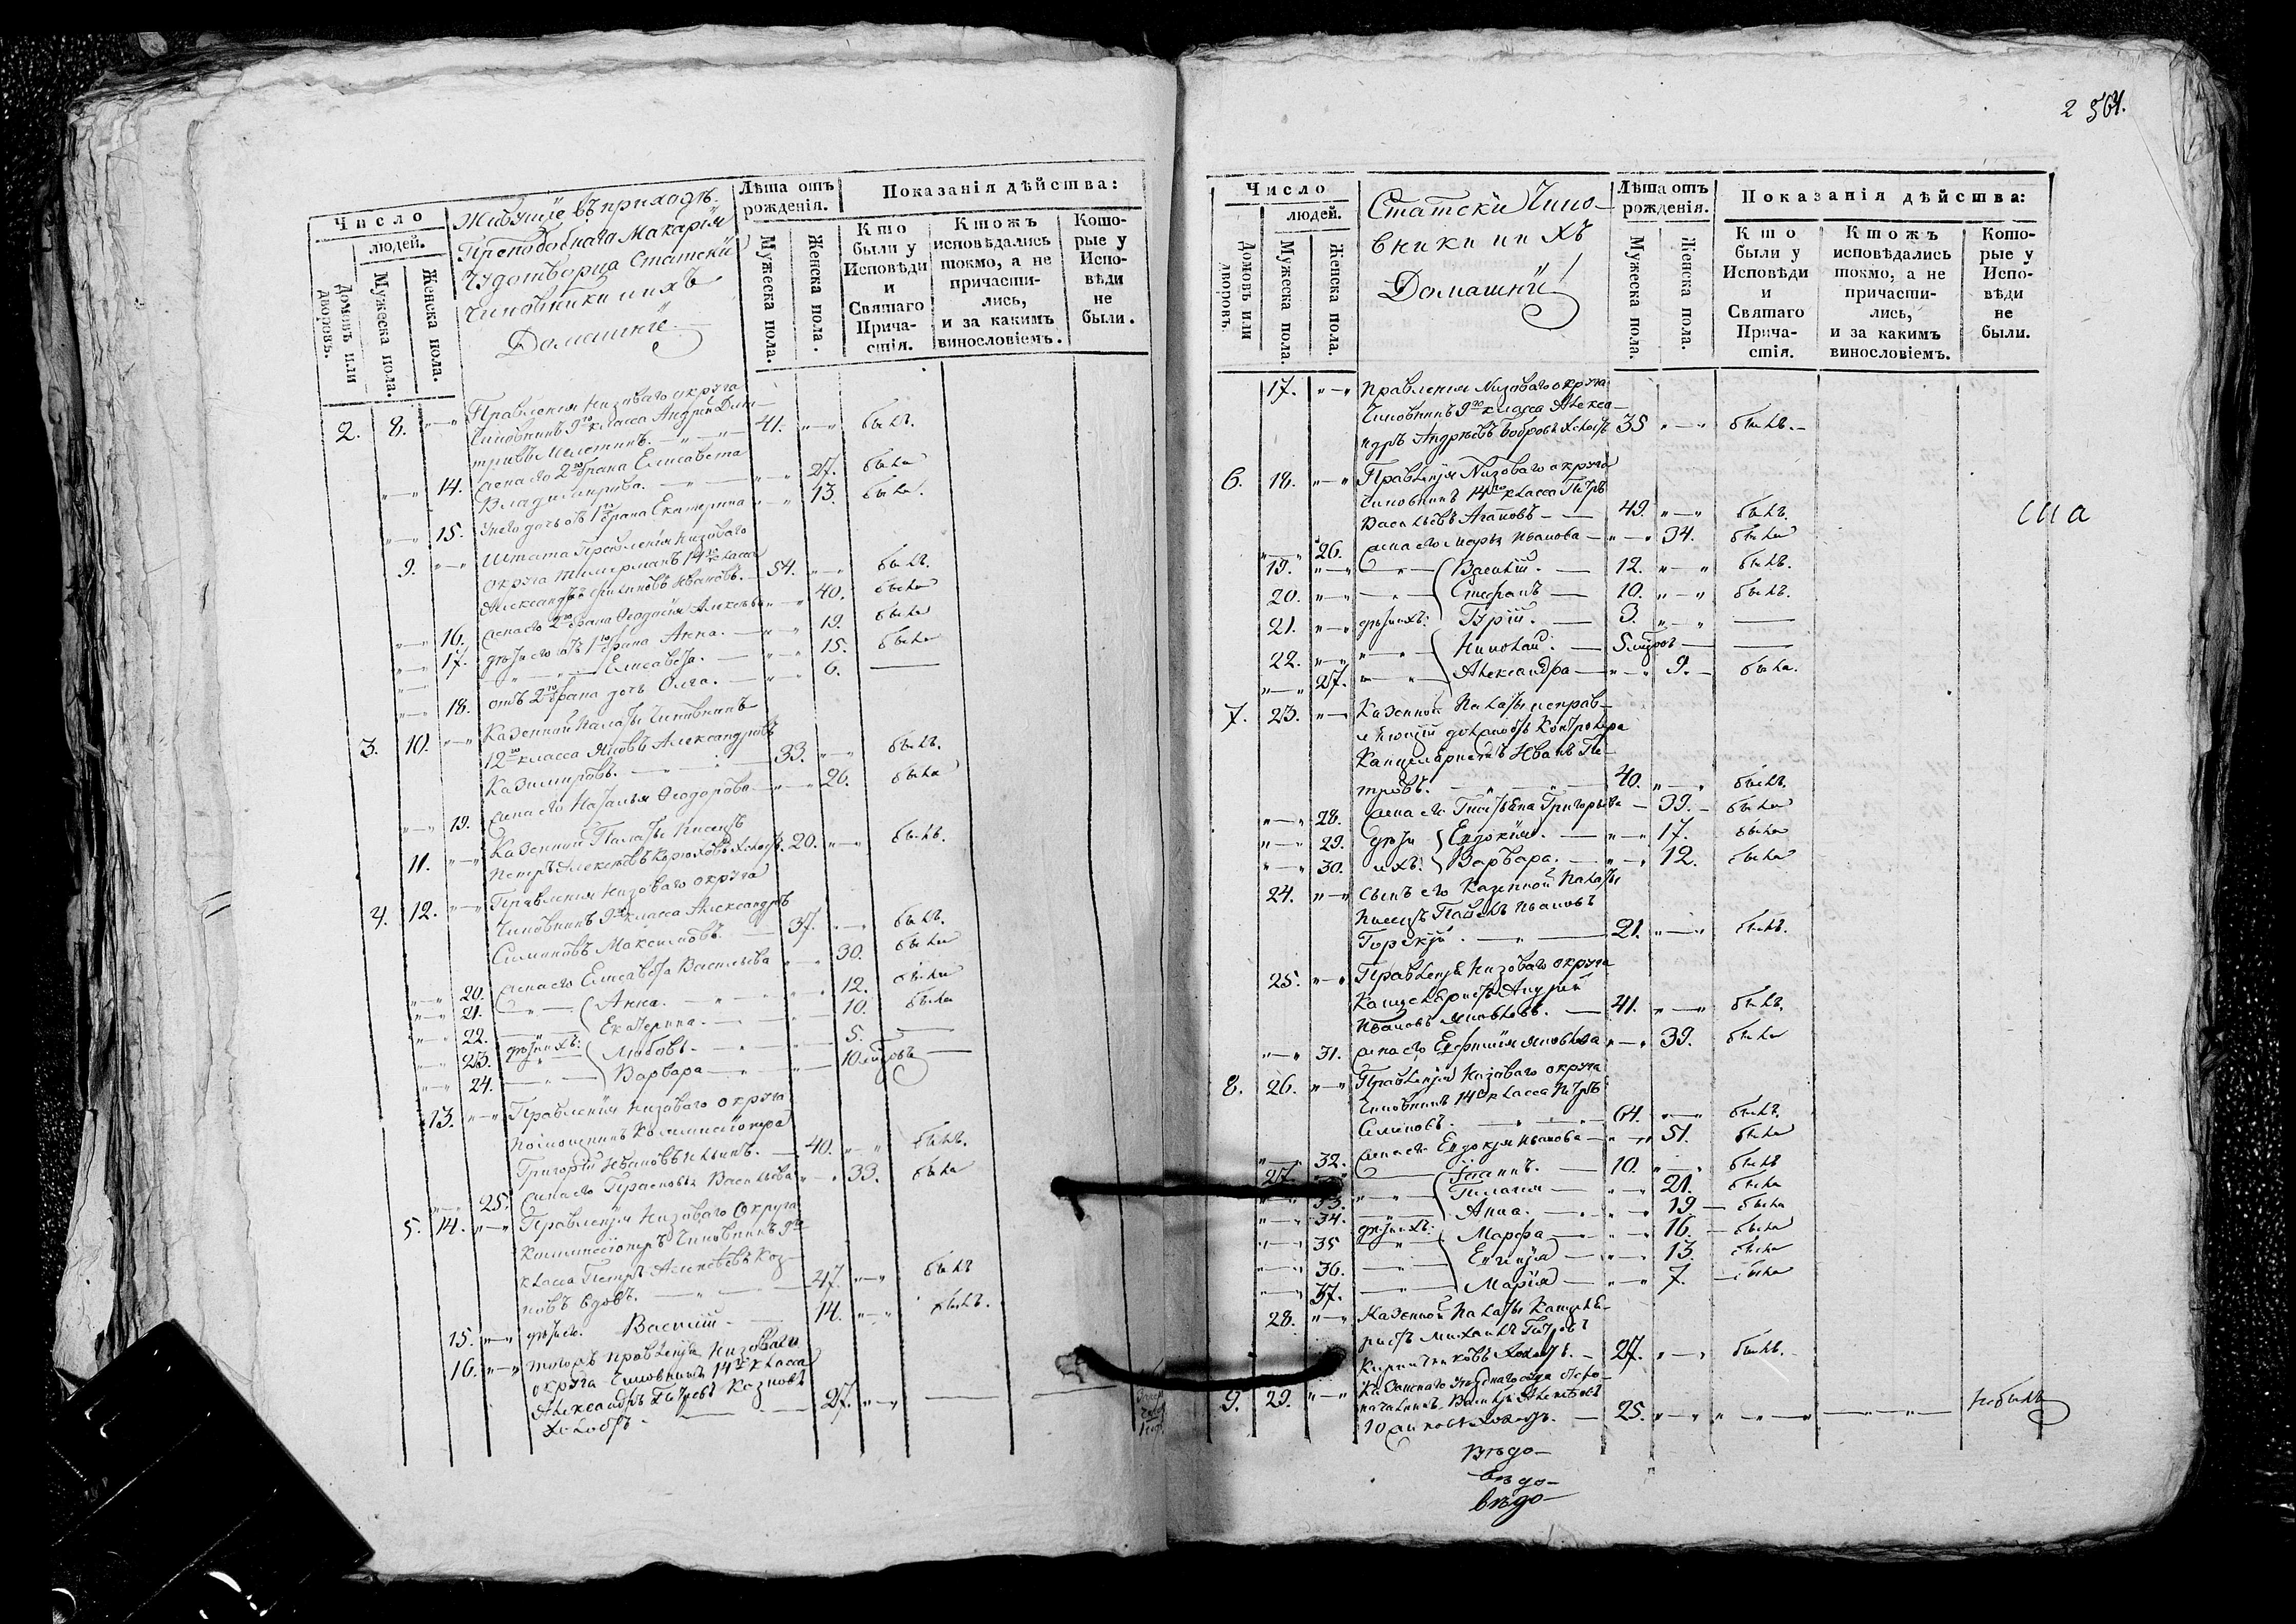 Число
людей.
Домовъ или дворовъ.
Мужеска пола.
Женска пола.
Живущіе въ приходѣ
Преподобнаго Макарія
Чудотворца Статскій
Чиновники и ихъ
Домашніе.
Лѣта отъ рожденія.
Мужеска пола.
Женска пола.
Показанія дѣйства:
Кто были у Исповѣди и Святаго Причастія.
Ктожъ исповѣдались токмо, а не причастились, и за какимъ винословіемъ.
Которые у Исповѣди не были.
2. 8. Правленія Низоваго округа
Чиновникъ 9го класса Андрей Дми-
тріевъ 41. былъ.
14. жена его 2го брака Елисавета
Владимирова. 27. была
15. у него дочь отъ 1го брака Екатерина 13. была.
9. Штата Правленія Низоваго
округа 14го класса
Александръ Ивановъ. 54. былъ.
16. жена его 2го брака Ѳеодосія Алексѣева 40. была
17. дѣти его отъ 1го брака Анна. 19. была
Елисавета. 15. была
18. отъ 2го брака дочь Олга. 6.
3. 10. Казенной Палаты Чиновникъ
12го класса Яковъ Александровъ
Казимировъ. 33. былъ.
19. жена его Наталья Ѳеодорова 26. была
11. Казенной Палаты писецъ
Петръ Алексѣевъ холостъ. 20. былъ.
4. 12. Правленія Низоваго округа
Чиновникъ 9го класса Александръ
Симионовъ Максимовъ. 37. былъ.
20. жена его Елисавета Васильева 30. была
21. Анна. 12. была
22. Екатерина. 10. была
23. дѣти ихъ: Любовь. 5.
24. Варвара 10 мѣсяцовъ
13. Правленія Низоваго округа
помощникъ Коммисіонера
Григорій Ивановъ Ильинъ. 40. былъ.
25. жена его Васильева 33. была
5. 14. Правленія Низоваго Округа
Коммиссіонеръ Чиновникъ 9го
класса Петръ Алексѣевъ Каз-
новъ вдовъ. 47. былъ
15. дѣти его. Василій 14. былъ.
16. тогожъ правленія Низоваго
округа Чиновникъ 14го класса
Александръ Петровъ Казновъ
холостъ 27.
2 564.
Число
людей.
Домовъ или дворовъ.
Мужеска пола.
Женска пола.
Статскіи Чино-
вники и ихъ
Домашніи
Лѣта отъ рожденія.
Мужеска пола.
Женска пола.
Показанія дѣйства:
Кто были у Исповѣди и Святаго Причастія.
Ктожъ исповѣдались токмо, а не причастились, и за какимъ винословіемъ.
Которые у Исповѣди не были.
17. Правленія Низоваго округа
Чиновникъ 9го класса Алекса-
ндръ Андрѣевъ Бобровъ холостъ 35 былъ.
6. 18. Правленія Низоваго округа
Чиновникъ 14го класса Петръ
Васильевъ Агаповъ 49. былъ.
26. жена его Марья Иванова 34. была
19. Василій. 12. былъ.
20. Стефанъ 10. былъ.
21. дѣти ихъ: Гурій. 3.
22. Николай. 5 мѣсяцовъ
27. Александра 9. была.
7. 23. Казенной Палаты исправ-
ляющій должность Контролера
Канцеляристъ Иванъ Пе-
тровъ. 40. былъ.
28. жена его Татьяна Григорьева 39. была
29. дѣти Евдокія. 17. была
30. ихъ: Варвара. 12. была
24. Сынъ его Казенной Палаты
писецъ Павелъ Ивановъ
Горскій. 21. былъ.
25. Правленія Низоваго округа
Канцеляристъ Андрей
Ивановъ Яковлевъ. 41. былъ.
31. жена его Евфимія Яковлева 39. была
8. 26. Правленія Низоваго округа
Чиновникъ 14го класса Петръ
Семеновъ. 64. былъ.
32. жена его Евдокія Иванова 51. была
27. Іоаннъ. 10. былъ
33. Пелагія 21. была
34. Анна. 19 была
35 дѣти ихъ: Марфа 16. была
36. Евгенія 13. была
37. Марія 7. была
28. Казенной Палаты Канцеля-
ристъ Михаилъ Петровъ
Кирпичниковъ холостъ. 27. былъ.
9. 29. Казанскаго суда
25. небылъ
вѣдо-
вѣдо-
вѣдо-